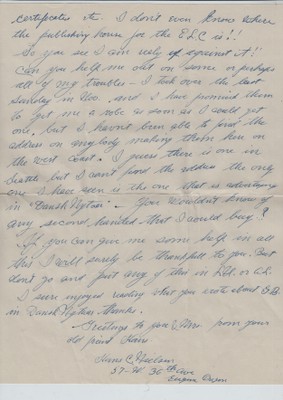 certificates etc. I don't even know where
the publishing house for the E.L.C is!!
So you see I am realy up against it!
Can you help me out on some or perhaps
all of my troubles - I take over the last
Sunday in Nov. and I have promised them
to get me a robe as soon as I could get
one. but I havnt been able to find the
address on anybody making them here on
the west Coast. I guess there is one in
Seattle but I can't find the address the only
one I have seen is the one that is advertising
in "Dansk Nytten". You wouldn't know of
any second handed that I could buy?
If you can give me some help in all
this I will surely be thankfull to you. But
don't go and put any of this in
I sure injoyed reading what you wrote about
in Dansk Nytten thanks.
Greetings to you & Mrs. from your
old friend Hans
Hans C.
57 - W 36th ave
Eugene Oregon